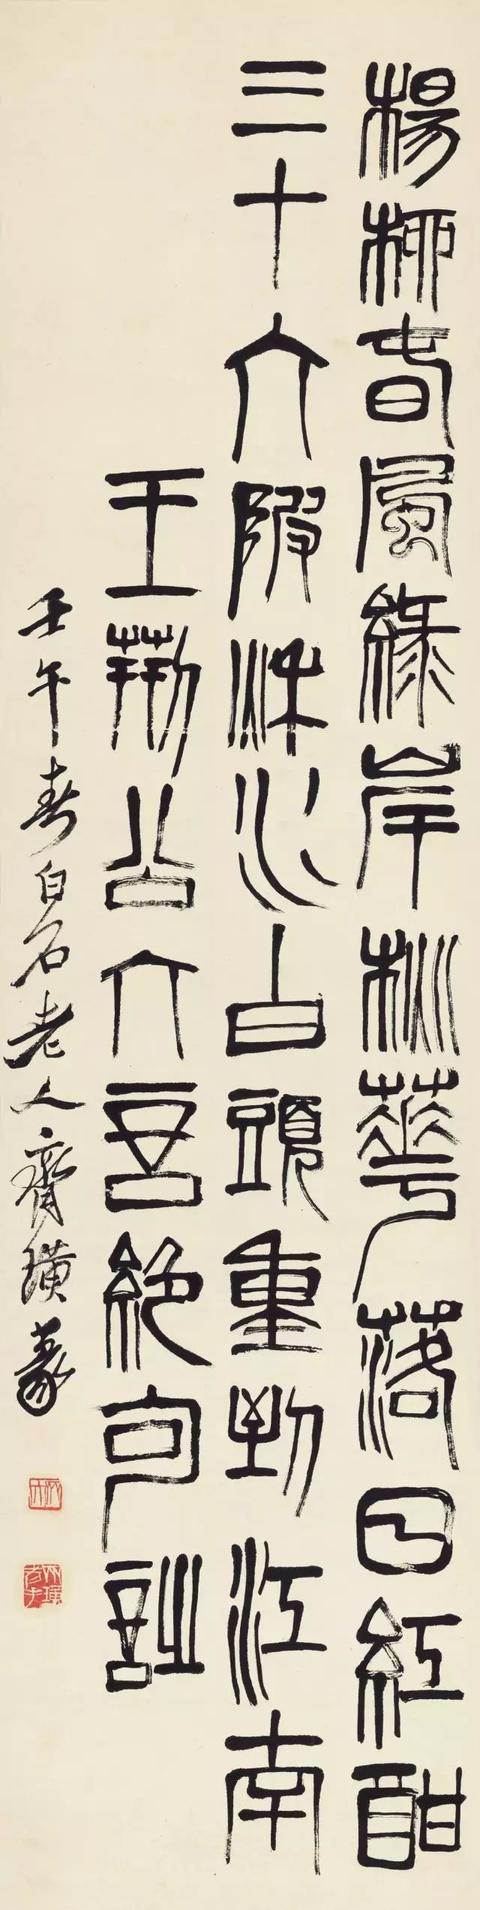 楊柳春風綠岸桃華落日紅酣
三十六陂水白頭重到江南
王荊公六言絕句詩
壬午春白石老人齊璜篆